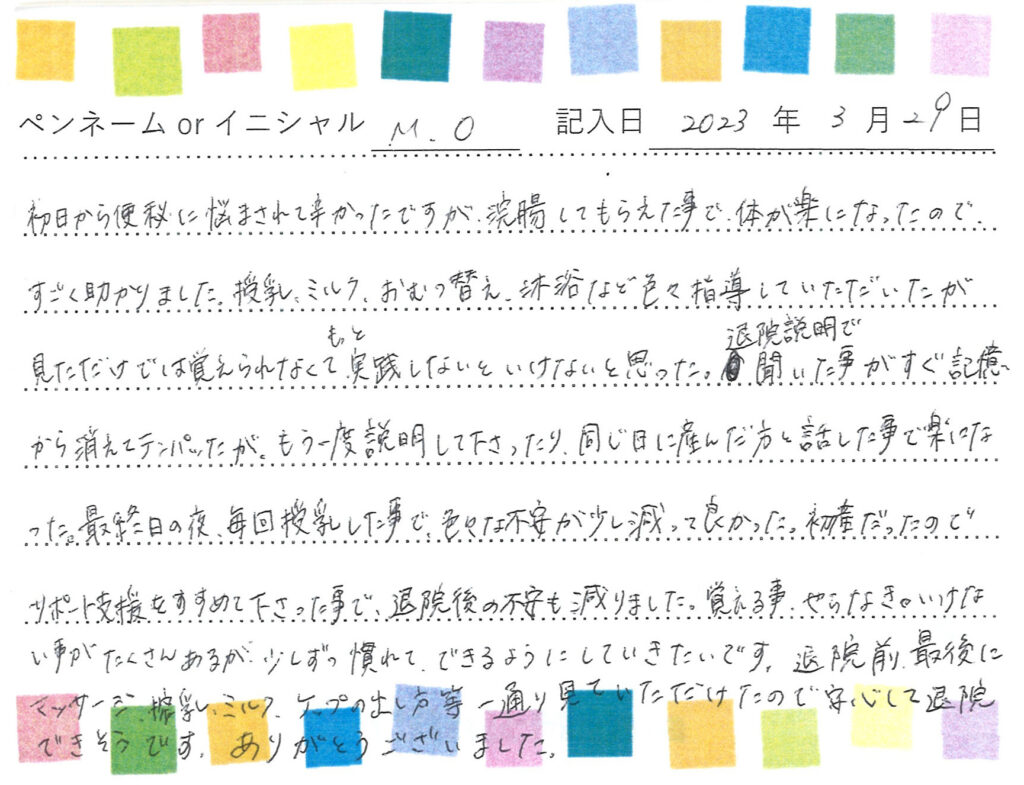 ペンネーム or イニシャル M.O 記入日 2023 年 3 月 29 日
初日から便秘に悩まされて辛かったですが、浣腸してもらえた事で、体が楽になったので、
すごく助かりました。授乳、ミルク、おむつ替え、沐浴など色々指導していただいたが
見ただけでは覚えられなくてもっと実践しないといけないと思った。退院説明で聞いた事がすぐ記憶
から消えてテンパッたが。もう一度説明して下さったり、同じ日に産んだ方と話した事で楽にな
った。最終日の夜、毎回授乳した事で、色々な不安が少し減って良かった。初産だったので
サポート支援をすすめて下さった事で、退院後の不安も減りました。覚える事、やらなきゃいけな
い事がたくさんあるが、少しずつ慣れて、できるようにしていきたいです。退院前、最後に
マッサージ、搾乳、ミルク、ゲップの出し方等一通り見ていただけたので安心して退院
できそうです。ありがとうございました。